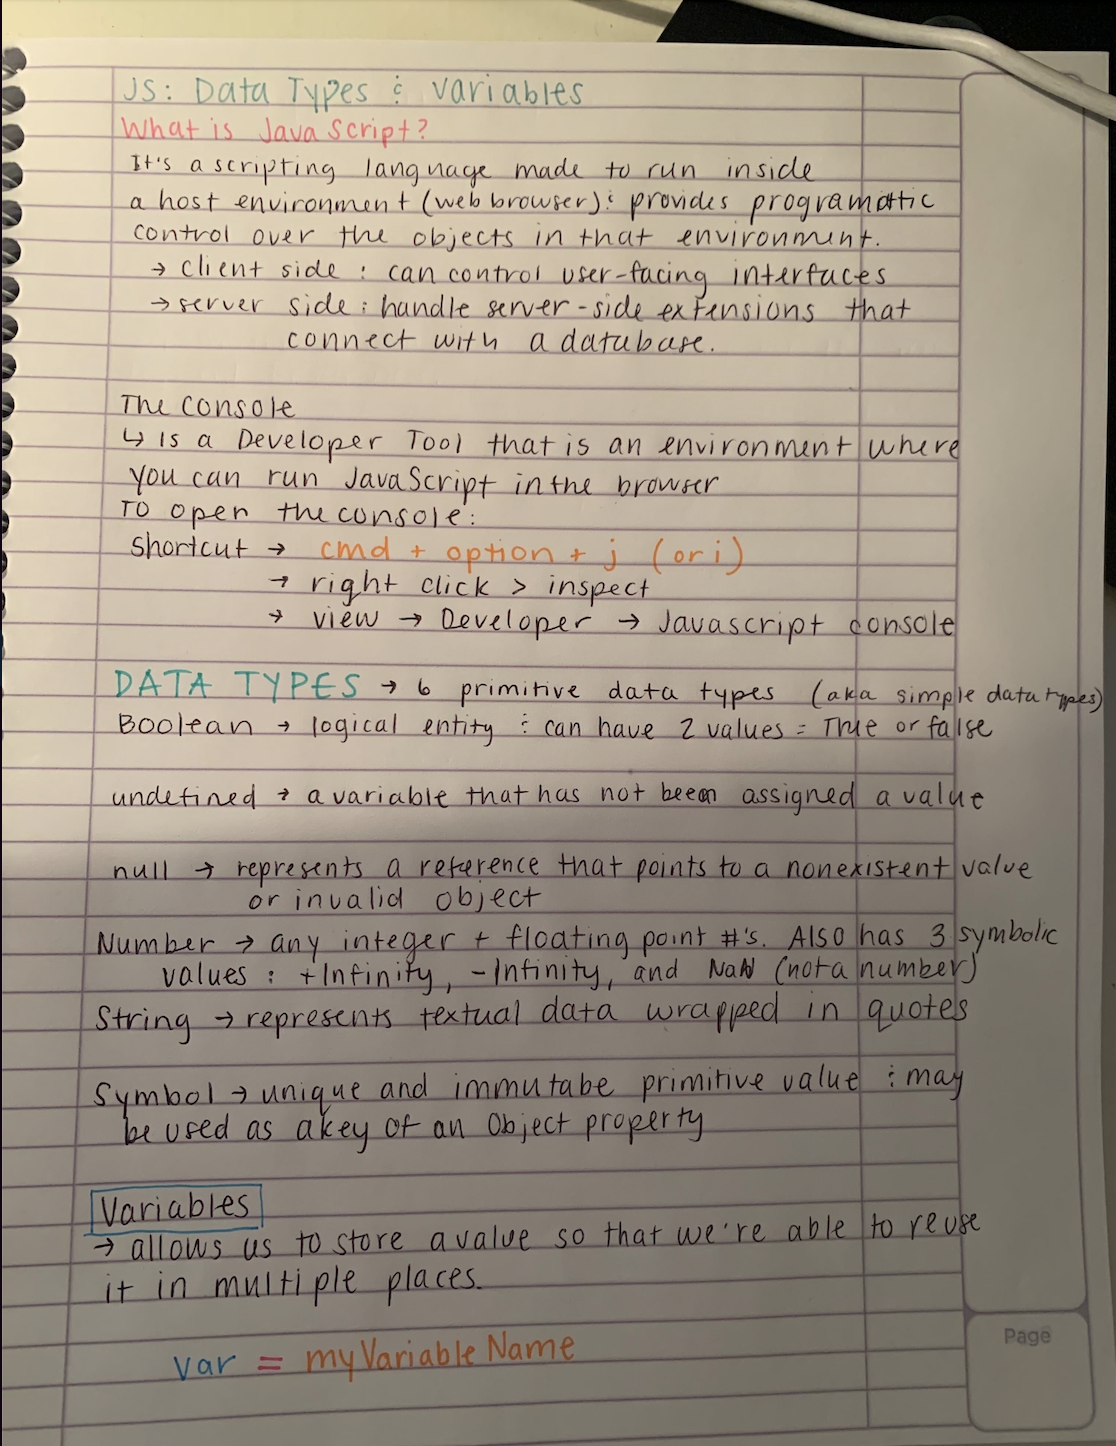 JS: Data Types & Variables
What is JavaScript?
It's a scripting language made to run inside
a host environment (web browser) & provides programattic
control over the objects in that environment.
→ Client side : can control user-facing interfaces
→ server side : handle server-side extensions that
connect with a database.
The Console
↳ is a Developer Tool that is an environment where
you can run JavaScript in the browser
To open the console:
Shortcut → cmd + option + j (or i)
→ right click > inspect
→ view → Developer → Javascript console
DATA TYPES → 6 primitive data types (aka simple data types)
Boolean → logical entity & can have 2 values = True or false
undefined → a variable that has not been assigned a value
null → represents a reference that points to a nonexistent value
or invalid object
Number → any integer + floating point #'s. Also has 3 symbolic
values : +Infinity, -Infinity, and NaN (not a number)
String → represents textual data wrapped in quotes
Symbol → unique and immutabe primitive value & may
be used as a key of an Object property
Variables
→ allows us to store a value so that we're able to reuse
it in multiple places.
var = myVariableName
Page